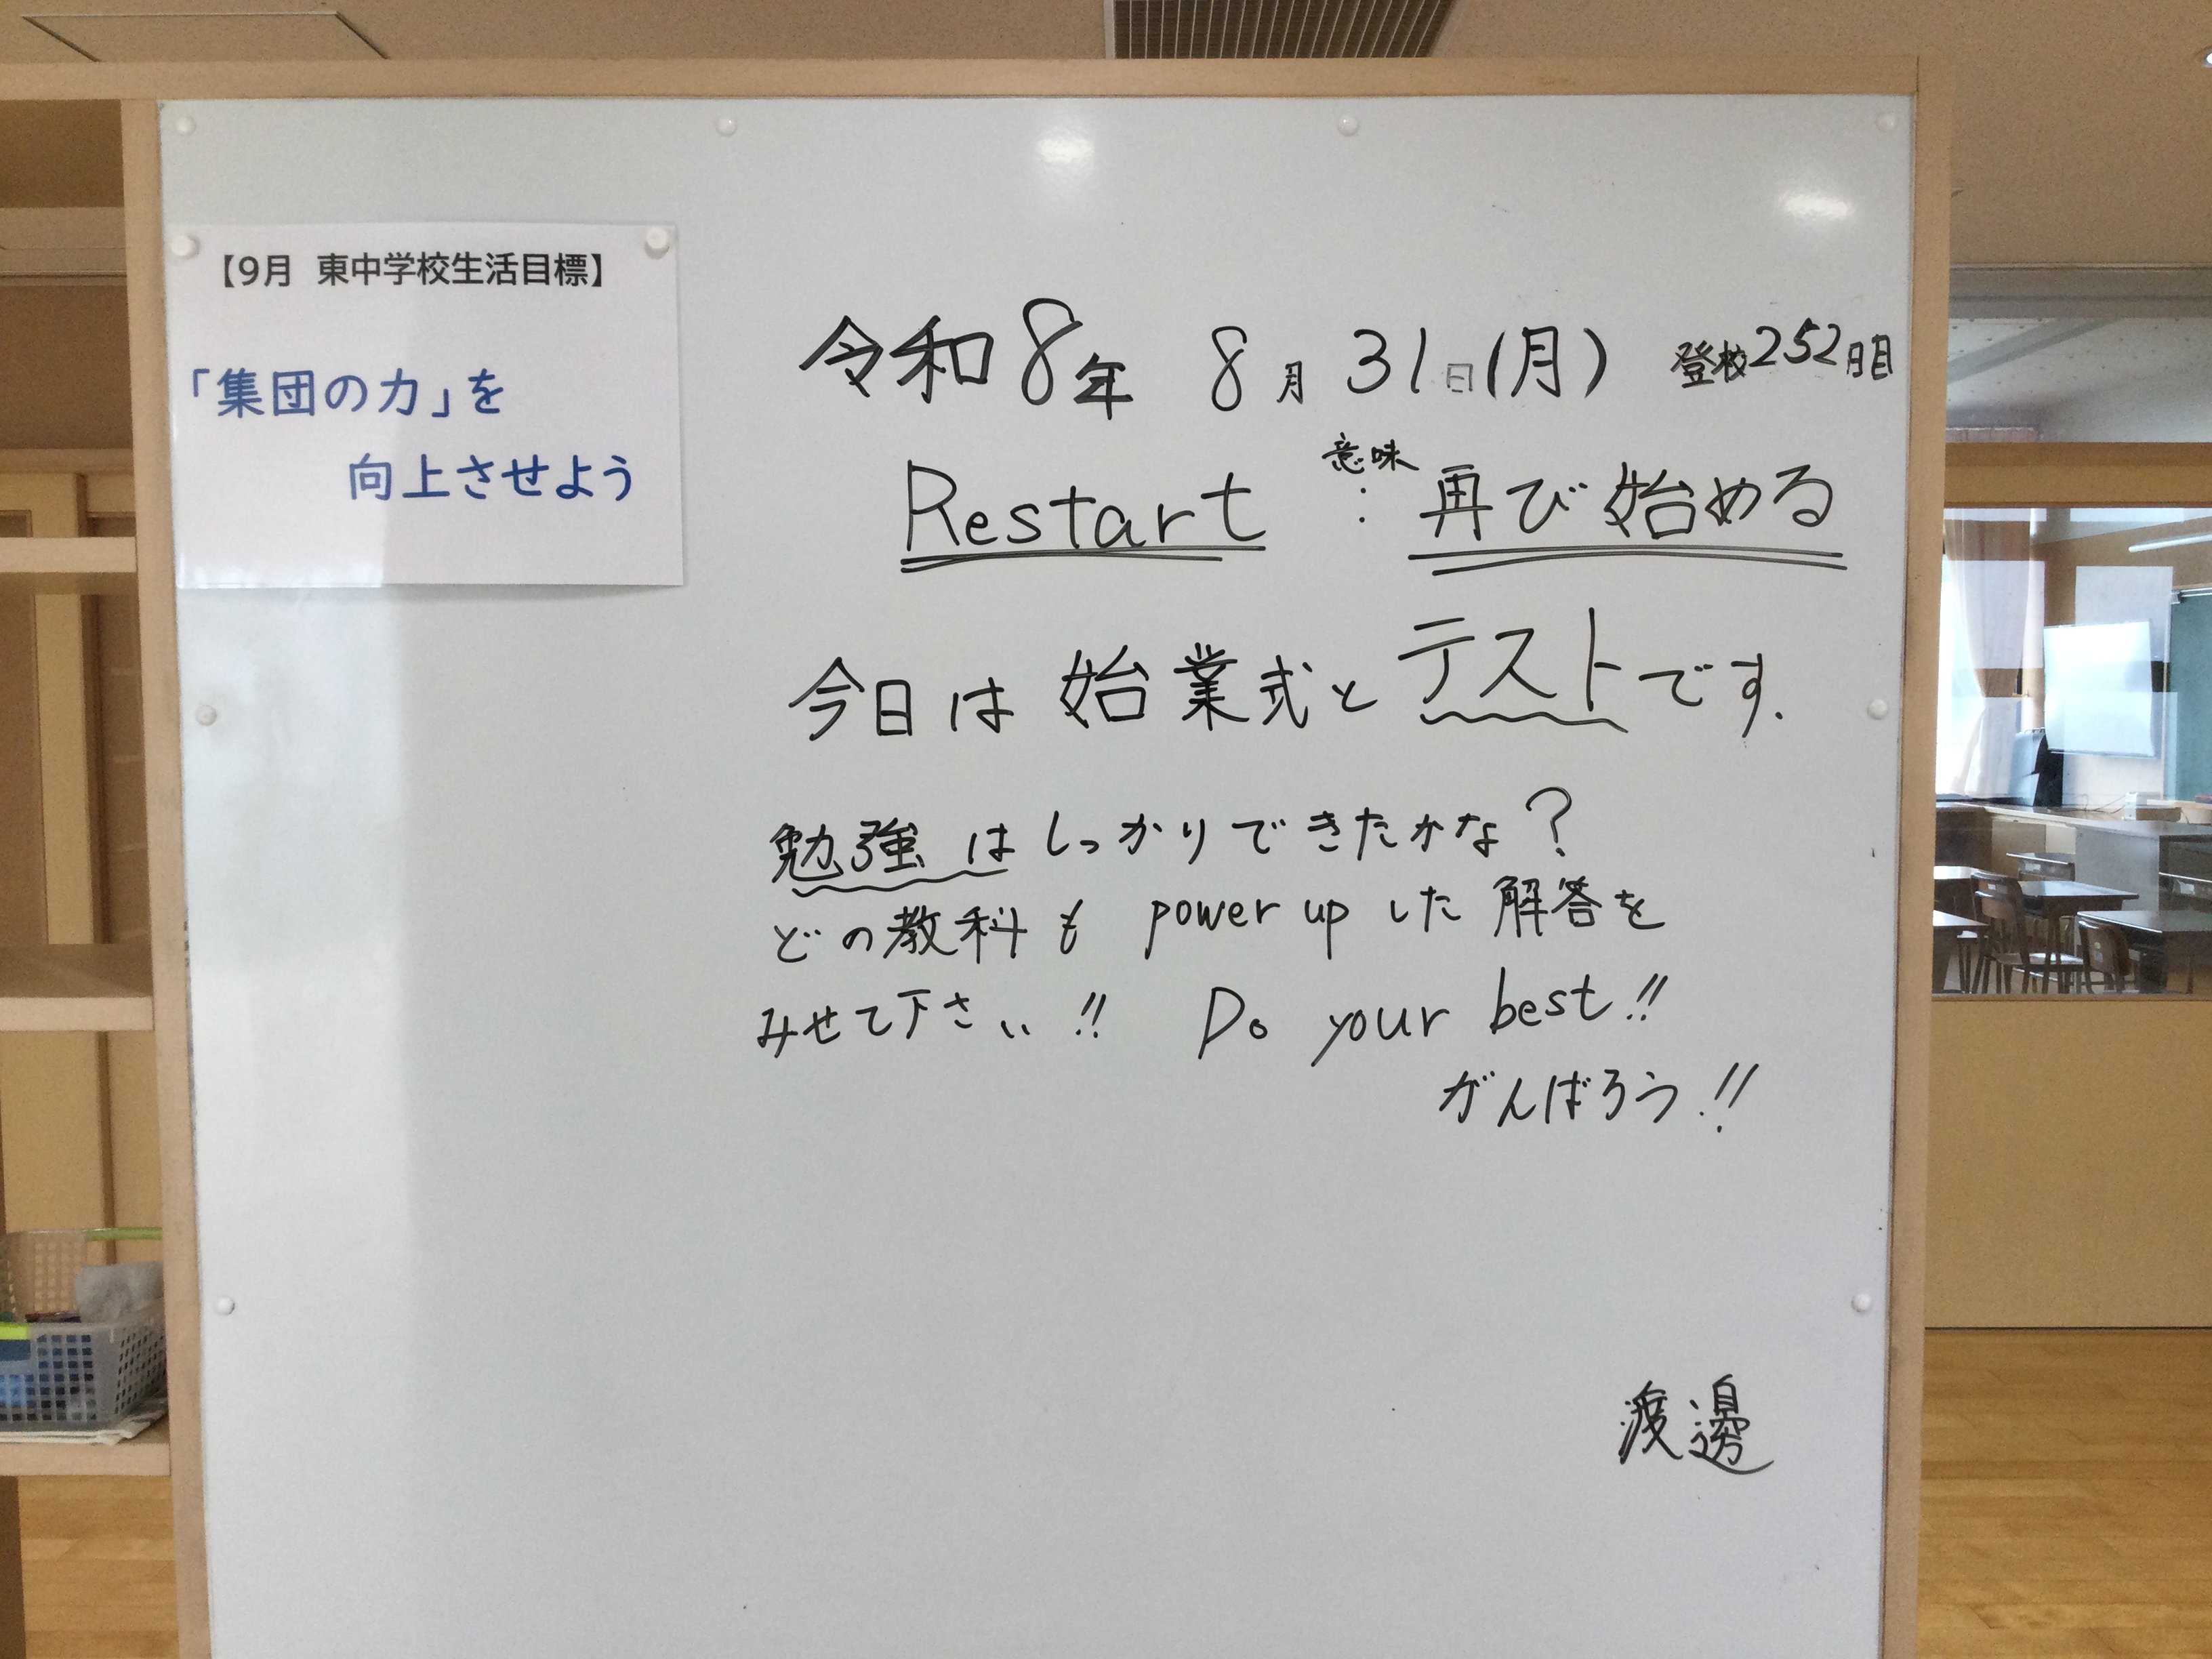 【9月 東中学校生活目標】
「集団の力」を
向上させよう
令和8年 8月31日(月) 登校252日目
Restart 意味: 再び始める
今日は始業式とテストです.
勉強はしっかりできたかな?
どの教科も power up した解答を
みせて下さい!! Do your best!!
がんばろう!!
渡邊